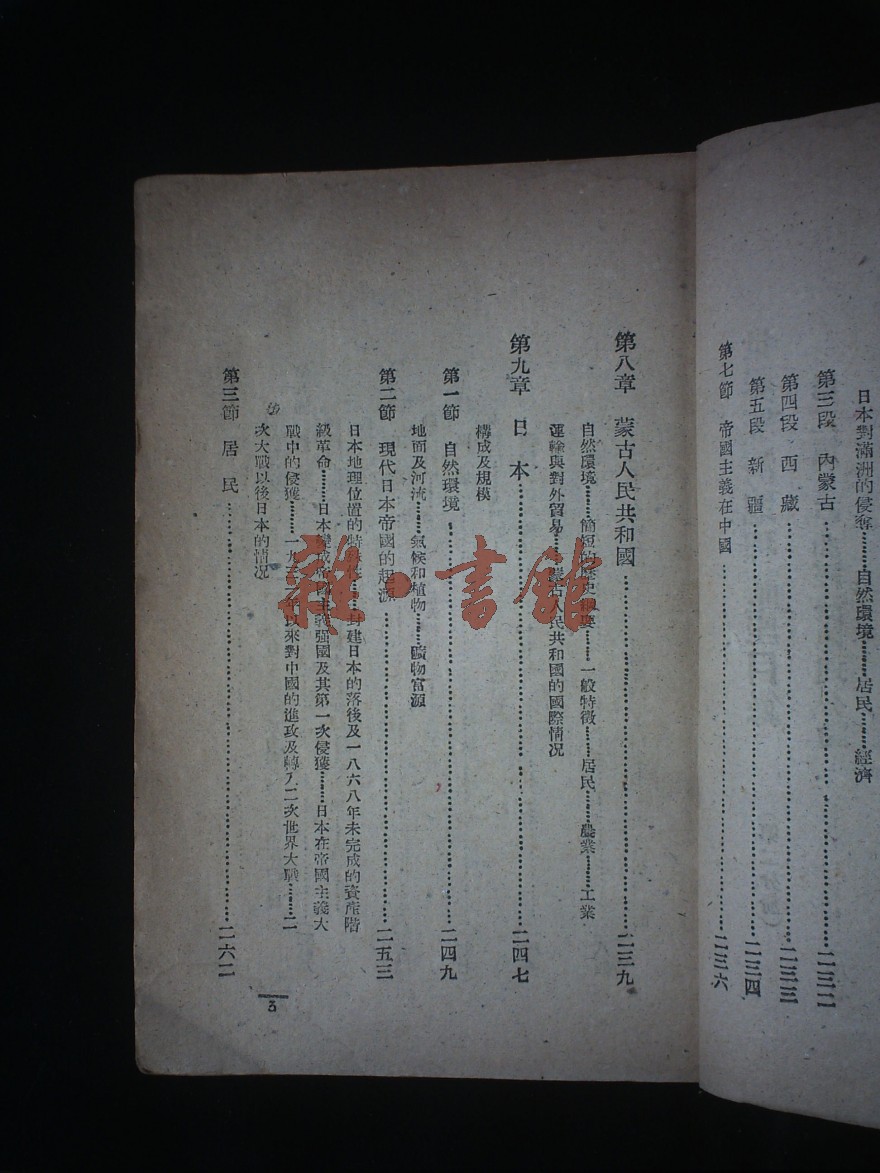 日本對滿洲的侵奪………自然環境………居民………經濟
第三段 內蒙古………二三二
第四段 西藏………二三三
第五段 新疆………二三四
第七節 帝國主義在中國………二三六
第八章 蒙古人民共和國………二三九
自然環境………簡短的歷史………一般特徵………居民………農業………工業
運輸與對外貿易………蒙古人民共和國的國際情况
第九章 日本………二四七
構成及規模
第一節 自然環境………二四九
地面及河流………氣候和植物………礦物富源
第二節 現代日本帝國的起源………二五三
日本地理位置的特殊………封建日本的落後及一八六八年未完成的資產階
級革命………日本變成帝國主義强國及其第一次侵獲………日本在帝國主義大
戰中的侵獲………一九三一年以來對中國的進攻及轉入二次世界大戰………二
次大戰以後日本的情况
第三節 居民………二六二
3
雜·書館